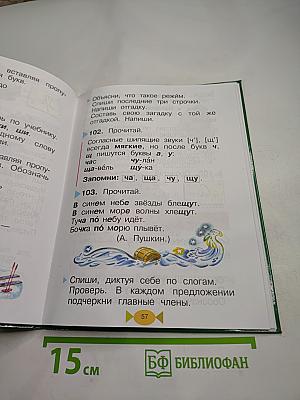 вставляя пропу-
букв.
по учебнику,
ки, ши.
одному слову
вляя пропу-
Обозначь
Объясни, что такое режим.
Спиши последние три строчки.
Напиши отгадку.
Составь свою загадку с той же
отгадкой. Напиши.
102. Прочитай.
Согласные шипящие звуки [ч'], [щ']
всегда мягкие, но после букв ч,
щ пишутся буквы а, у:
час чу-лан
ща-вель щу-ка
Запомни: ча, ща, чу, щу.
103. Прочитай.
В синем небе звёзды блещут,
В синем море волны хлещут.
Туча по небу идёт,
Бочка по морю плывёт.
(А. Пушкин.)
Спиши, диктуя себе по слогам.
Проверь. В каждом предложении
подчеркни главные члены.
57
15 см
БФ БИБЛИОФАН